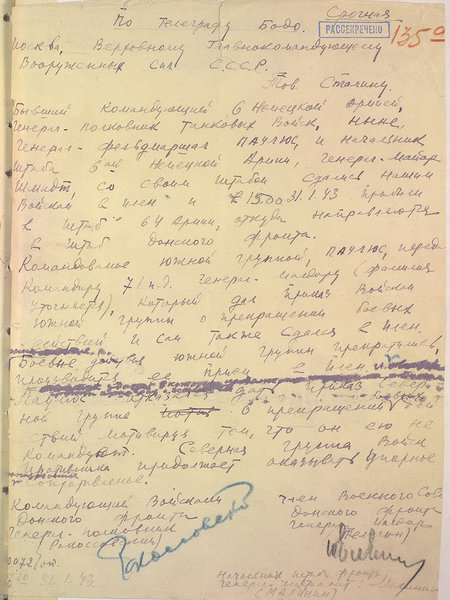 Срочная
По Телеграфу Бодо.
РАССЕКРЕЧЕНО
135
Москва, Верховному Главнокомандующему
Вооруженных Сил С.С.С.Р.
Тов. Сталину.
Бывший Командующий 6 Немецкой Армией,
Генерал-полковник танковых войск, ныне,
Генерал-фельдмаршал ПАУЛЮС, и начальник
Штаба 6-ой Немецкой Армии, Генерал-майор
Шмидт, со своим штабом сдались нашим
войскам в плен и в 15.00 31.1.43 прибыли
в штаб 64 Армии, откуда направляются
в штаб Донского фронта.
Командование южной группой, ПАУЛЮС, передал
Командиру 71 п.д. Генерал-майору (фамилия
уточняется), который дал приказ войскам
южной группы о прекращении боевых
действий и сам также сдался в плен.
Боевые действия южной группы прекратились,
производится её прием в плен.
Паулюс дать приказ Север-
ной группе о прекращении дей-
ствий мотивируя тем, что он ею не
командует. Северная группа войск
противника продолжает оказывать упорное
сопротивление.
Командующий Войсками
Донского фронта
Генерал-полковник
(Рокоссовский)
Рокоссовский
Член Военного Совета
Донского фронта
Генерал-майор
(Телегин)
0072/оп.
31.1.43.
Начальник штаба фронта
Генерал-лейтенант
(МАЛИНИН)